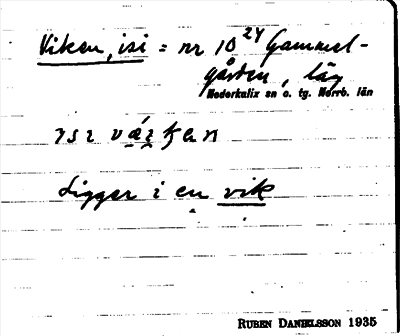 Viken, isi = nr 10²⁴ Gammel-
gården, läg
Nederkalix sn o. tg. Norrb. län
Ligger i en vik
RUBEN DANIELSSON 1935